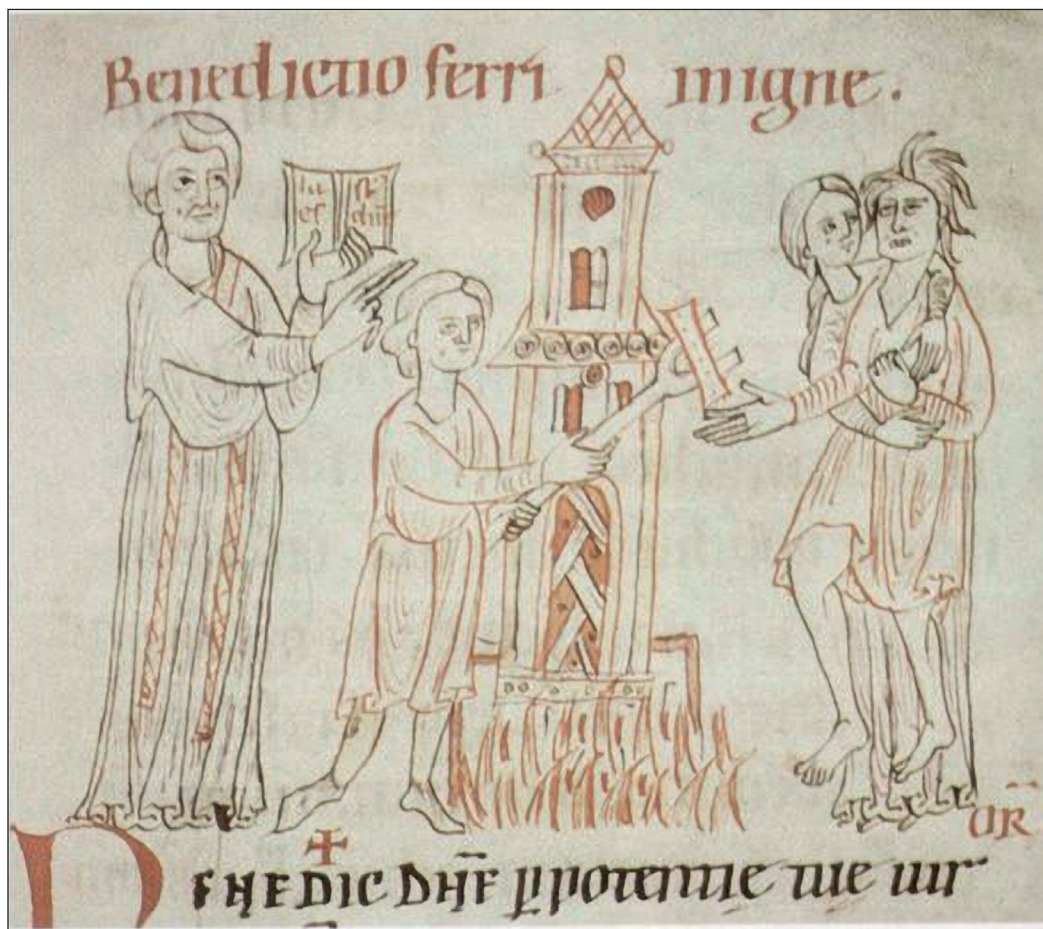 Benedictio ferri inigne.
OR̄
BENEDIC DN̄E ꝑ potentie tue uir